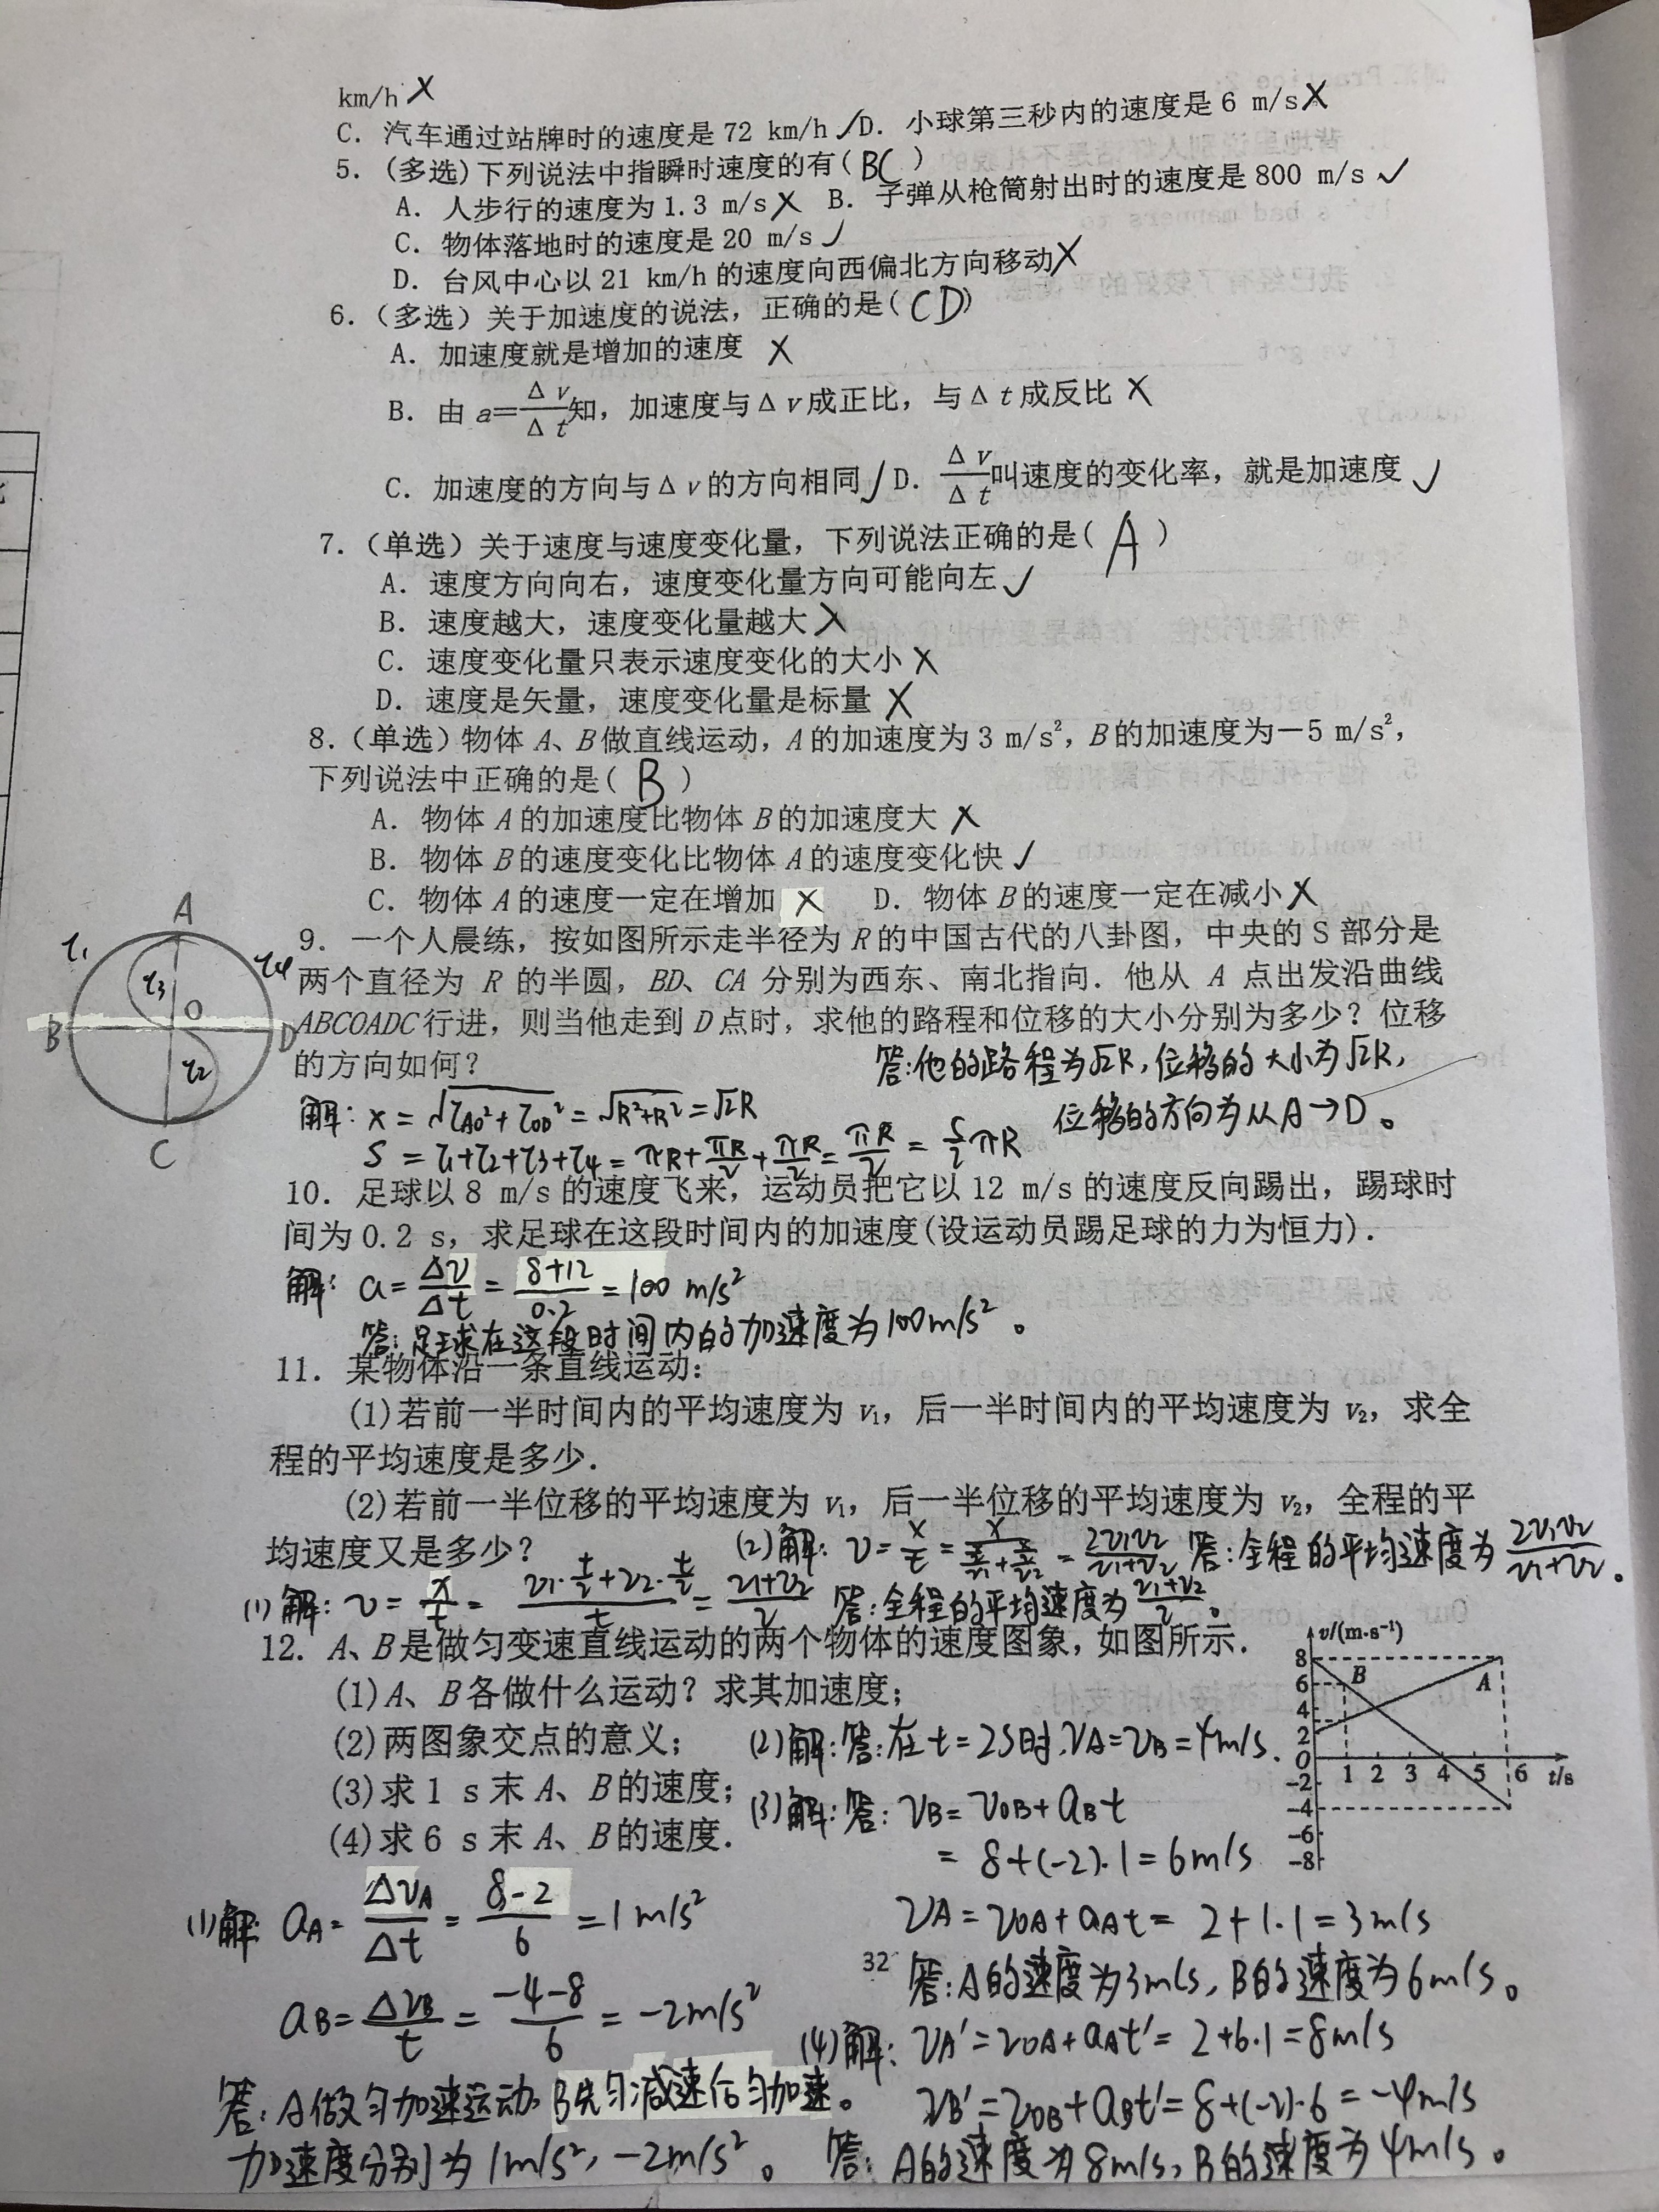 km/h X
C. 汽车通过站牌时的速度是 72 km/h ✓ D. 小球第三秒内的速度是 6 m/s X
5. (多选)下列说法中指瞬时速度的有( BC )
A. 人步行的速度为 1.3 m/s X B. 子弹从枪筒射出时的速度是 800 m/s ✓
C. 物体落地时的速度是 20 m/s ✓
D. 台风中心以 21 km/h 的速度向西偏北方向移动 X
6.（多选）关于加速度的说法，正确的是( CD )
A. 加速度就是增加的速度 X
B. 由 a=Δv/Δt知，加速度与Δv成正比，与Δt成反比 X
C. 加速度的方向与Δv的方向相同 ✓ D. Δv/Δt叫速度的变化率，就是加速度 ✓
7.（单选）关于速度与速度变化量，下列说法正确的是( A )
A. 速度方向向右，速度变化量方向可能向左 ✓
B. 速度越大，速度变化量越大 X
C. 速度变化量只表示速度变化的大小 X
D. 速度是矢量，速度变化量是标量 X
8.（单选）物体 A、B做直线运动，A的加速度为 3 m/s²，B的加速度为－5 m/s²，
下列说法中正确的是( B )
A. 物体 A的加速度比物体 B的加速度大 X
B. 物体 B的速度变化比物体 A的速度变化快 ✓
C. 物体 A的速度一定在增加 X D. 物体 B的速度一定在减小 X
A
τ1 τ4
τ3
O
B D
τ2
C
9. 一个人晨练，按如图所示走半径为 R的中国古代的八卦图，中央的 S 部分是
两个直径为 R 的半圆，BD、CA 分别为西东、南北指向．他从 A 点出发沿曲线
ABCOADC行进，则当他走到 D点时，求他的路程和位移的大小分别为多少？位移
的方向如何？
答:他的路程为√2R,位移的大小为√2R,
位移的方向为从A→D。
解: x = √(τAO²+τOD²) = √(R²+R²) = √2R
S = τ1+τ2+τ3+τ4 = πR+πR/2+πR/2=πR/2 = 5/2πR
10. 足球以 8 m/s 的速度飞来，运动员把它以 12 m/s 的速度反向踢出，踢球时
间为 0.2 s，求足球在这段时间内的加速度(设运动员踢足球的力为恒力)．
解: a=Δv/Δt=(8+12)/0.2=100 m/s²
答:足球在这段时间内的加速度为100m/s²。
11. 某物体沿一条直线运动：
(1)若前一半时间内的平均速度为 v₁，后一半时间内的平均速度为 v₂，求全
程的平均速度是多少．
(2)若前一半位移的平均速度为 v₁，后一半位移的平均速度为 v₂，全程的平
均速度又是多少？
(2)解: v=x/t = 2v1v2/(v1+v2) 答:全程的平均速度为2v1v2/(v1+v2)。
(1)解: v=x/t=(v1·t/2+v2·t/2)/t=(v1+v2)/2 答:全程的平均速度为(v1+v2)/2。
12. A、B是做匀变速直线运动的两个物体的速度图象，如图所示．
(1)A、B各做什么运动？求其加速度；
(2)两图象交点的意义；
(3)求 1 s 末 A、B的速度；
(4)求 6 s 末 A、B的速度．
v/(m·s⁻¹)
8
6 B A
4
2
0 1 2 3 4 5 6 t/s
-2
-4
-6
-8
(2)解:答:在t=2S时,vA=vB=4m/s.
(3)解:答: vB= v0B+aBt
= 8+(-2)·1=6m/s
vA=v0A+aAt= 2+1·1=3m/s
答:A的速度为3m/s,B的速度为6m/s。
(1)解: aA=ΔvA/Δt=(8-2)/6=1m/s²
aB=ΔvB/t=(-4-8)/6=-2m/s²
答:A做匀加速运动 B先匀减速后匀加速。
加速度分别为1m/s²,-2m/s²。
32
(4)解: vA'=v0A+aAt'= 2+6·1=8m/s
vB'=v0B+aBt'=8+(-2)·6=-4m/s
答: A的速度为8m/s,B的速度为4m/s。